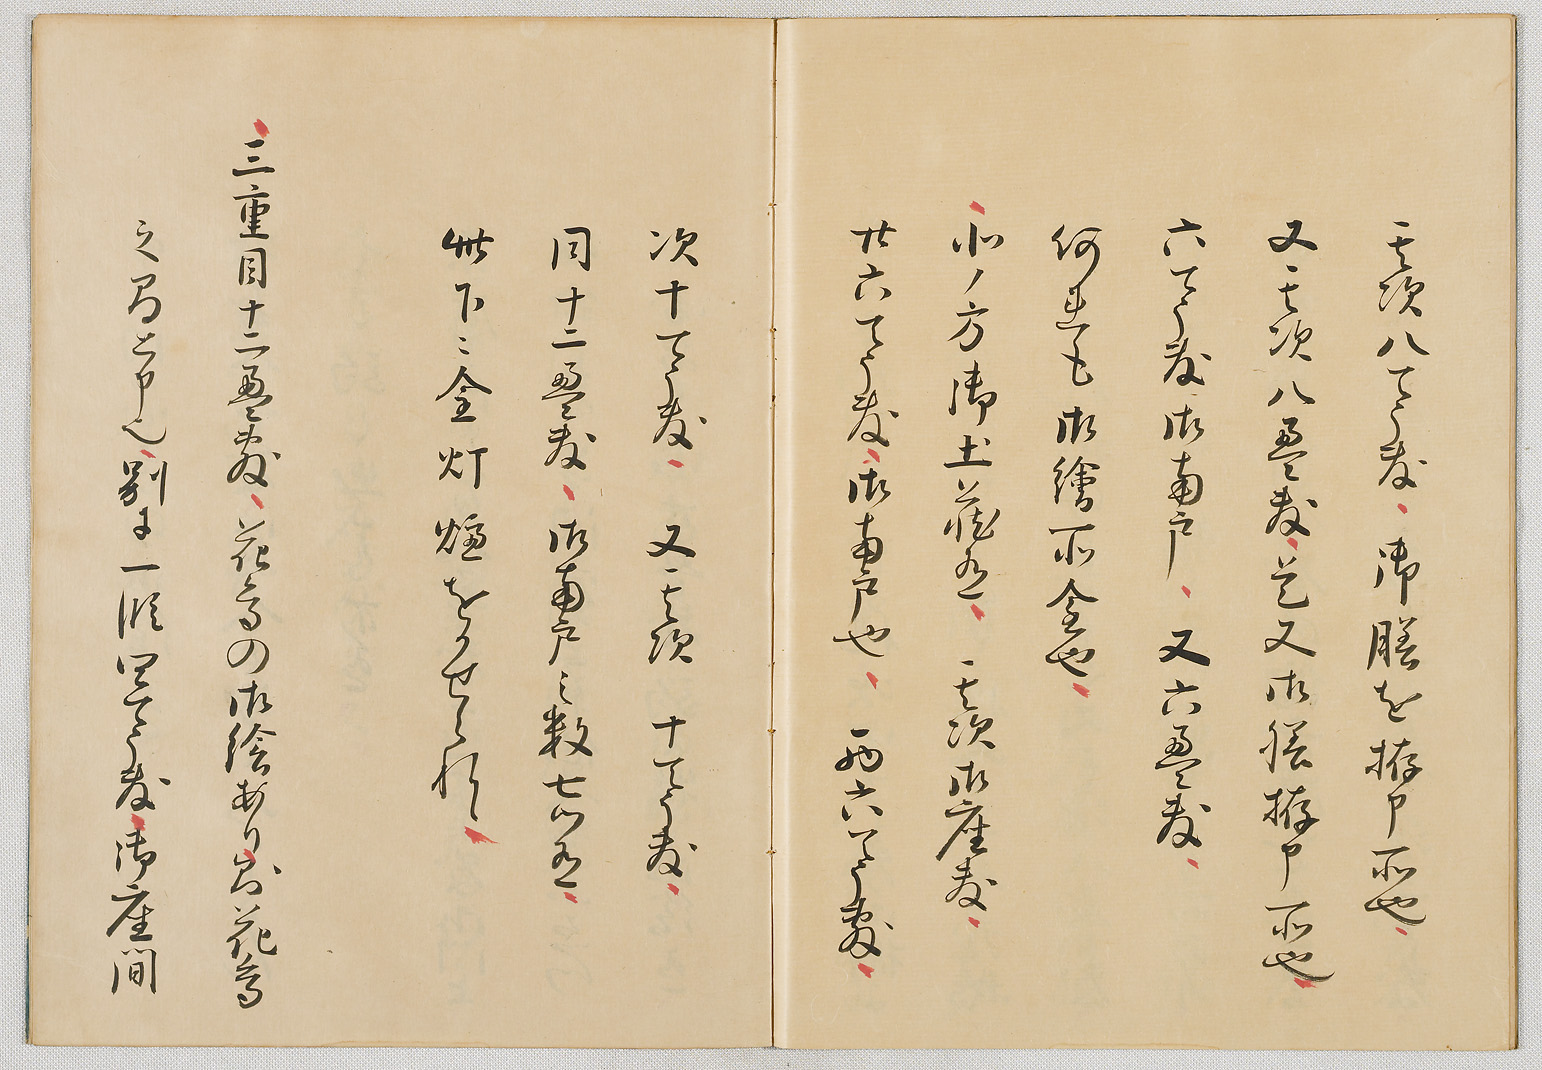 其次八てう敷、御膳を拵申所也、
又其次八畳敷、是又御膳拵申所也、
六てう敷御南戸、又六畳敷、
何連も御繪所金也、
北ノ方御土蔵有、其次御座敷、
廿六てう敷、御南戸也、西六てう敷、
次十てう敷、又其次十てう敷、
同十二畳敷、御南戸之数七ツ有、
此下ニ金灯爐をかせられ
三重目十二畳敷、花鳥の御絵あり、則花鳥
之間と申也、別ニ一段四てう敷、御座間